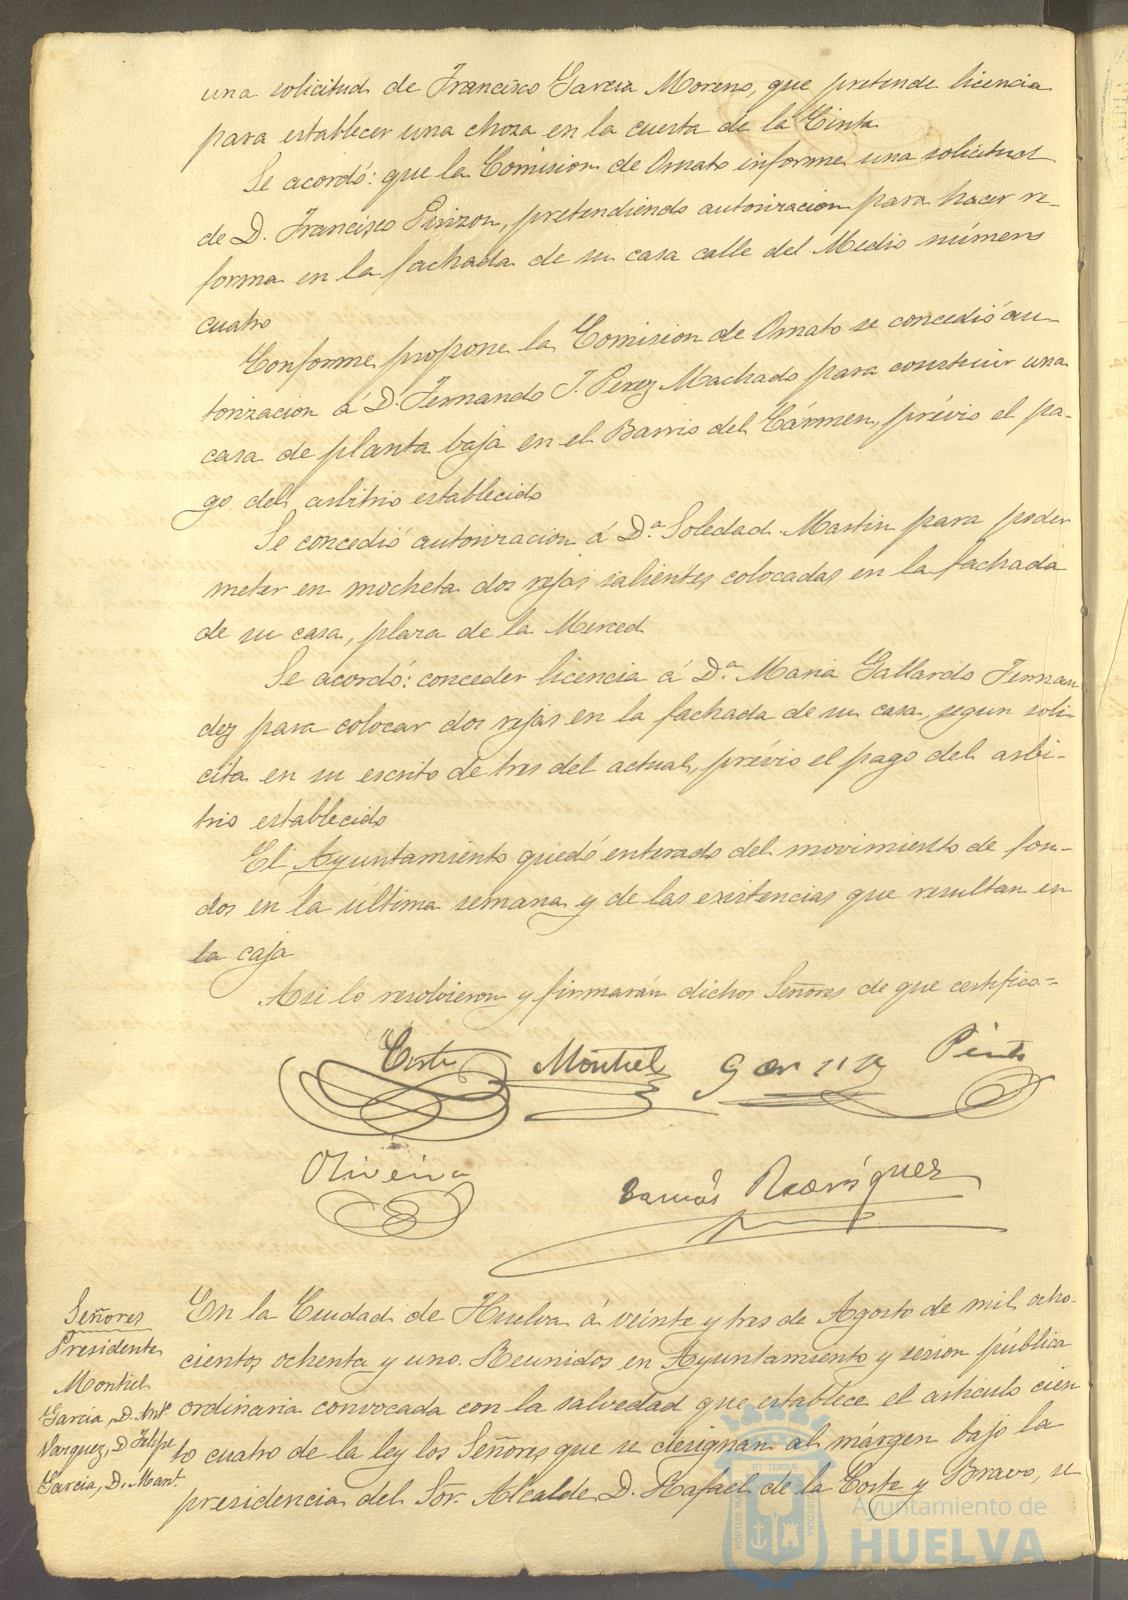 una solicitud de Francisco Garcia Moreno, que pretende licencia
para establecer una choza en la cuesta de la Cinta
Se acordó: que la Comision de Ornato informe una solicitud
de D. Francisco Pinzon, pretendiendo autorizacion para hacer re-
forma en la fachada de su casa calle del Medio número
cuatro
Conforme propone la Comision de Ornato se concedió au-
torizacion á D. Fernando J. Perez Machado para construir una
casa de planta baja en el Barrio del Cármen, prévio el pa-
go del arbitrio establecido
Se concedió autorizacion á D.ª Soledad Martin para poder
meter en mocheta dos rejas salientes colocadas en la fachada
de su casa, plaza de la Merced
Se acordó: conceder licencia á D.ª Maria Gallardo Fernan
dez para colocar dos rejas en la fachada de su casa, segun soli-
cita en su escrito de tres del actual, prévio el pago del arbi-
trio establecido
El Ayuntamiento quedó enterado del movimiento de fon-
dos en la última semana y de las existencias que resultan en
la caja
Asi lo resolvieron y firmarán dichos Señores de que certifico=
Corte Montiel Garcia Pinto
Oliveira
Rodriguez
Señores
Presidente
Montiel
Garcia, D. Ant.º
Vazquez, D Felipe
Garcia, D. Man.l
En la Ciudad de Huelva á veinte y tres de Agosto de mil ocho-
cientos ochenta y uno. Reunidos en Ayuntamiento y sesion pública
ordinaria convocada con la salvedad que establece el artículo cien
to cuatro de la ley los Señores que se designan al márgen bajo la
presidencia del Sor. Alcalde D. Rafael de la Corte y Bravo, se
Ayuntamiento de
HUELVA